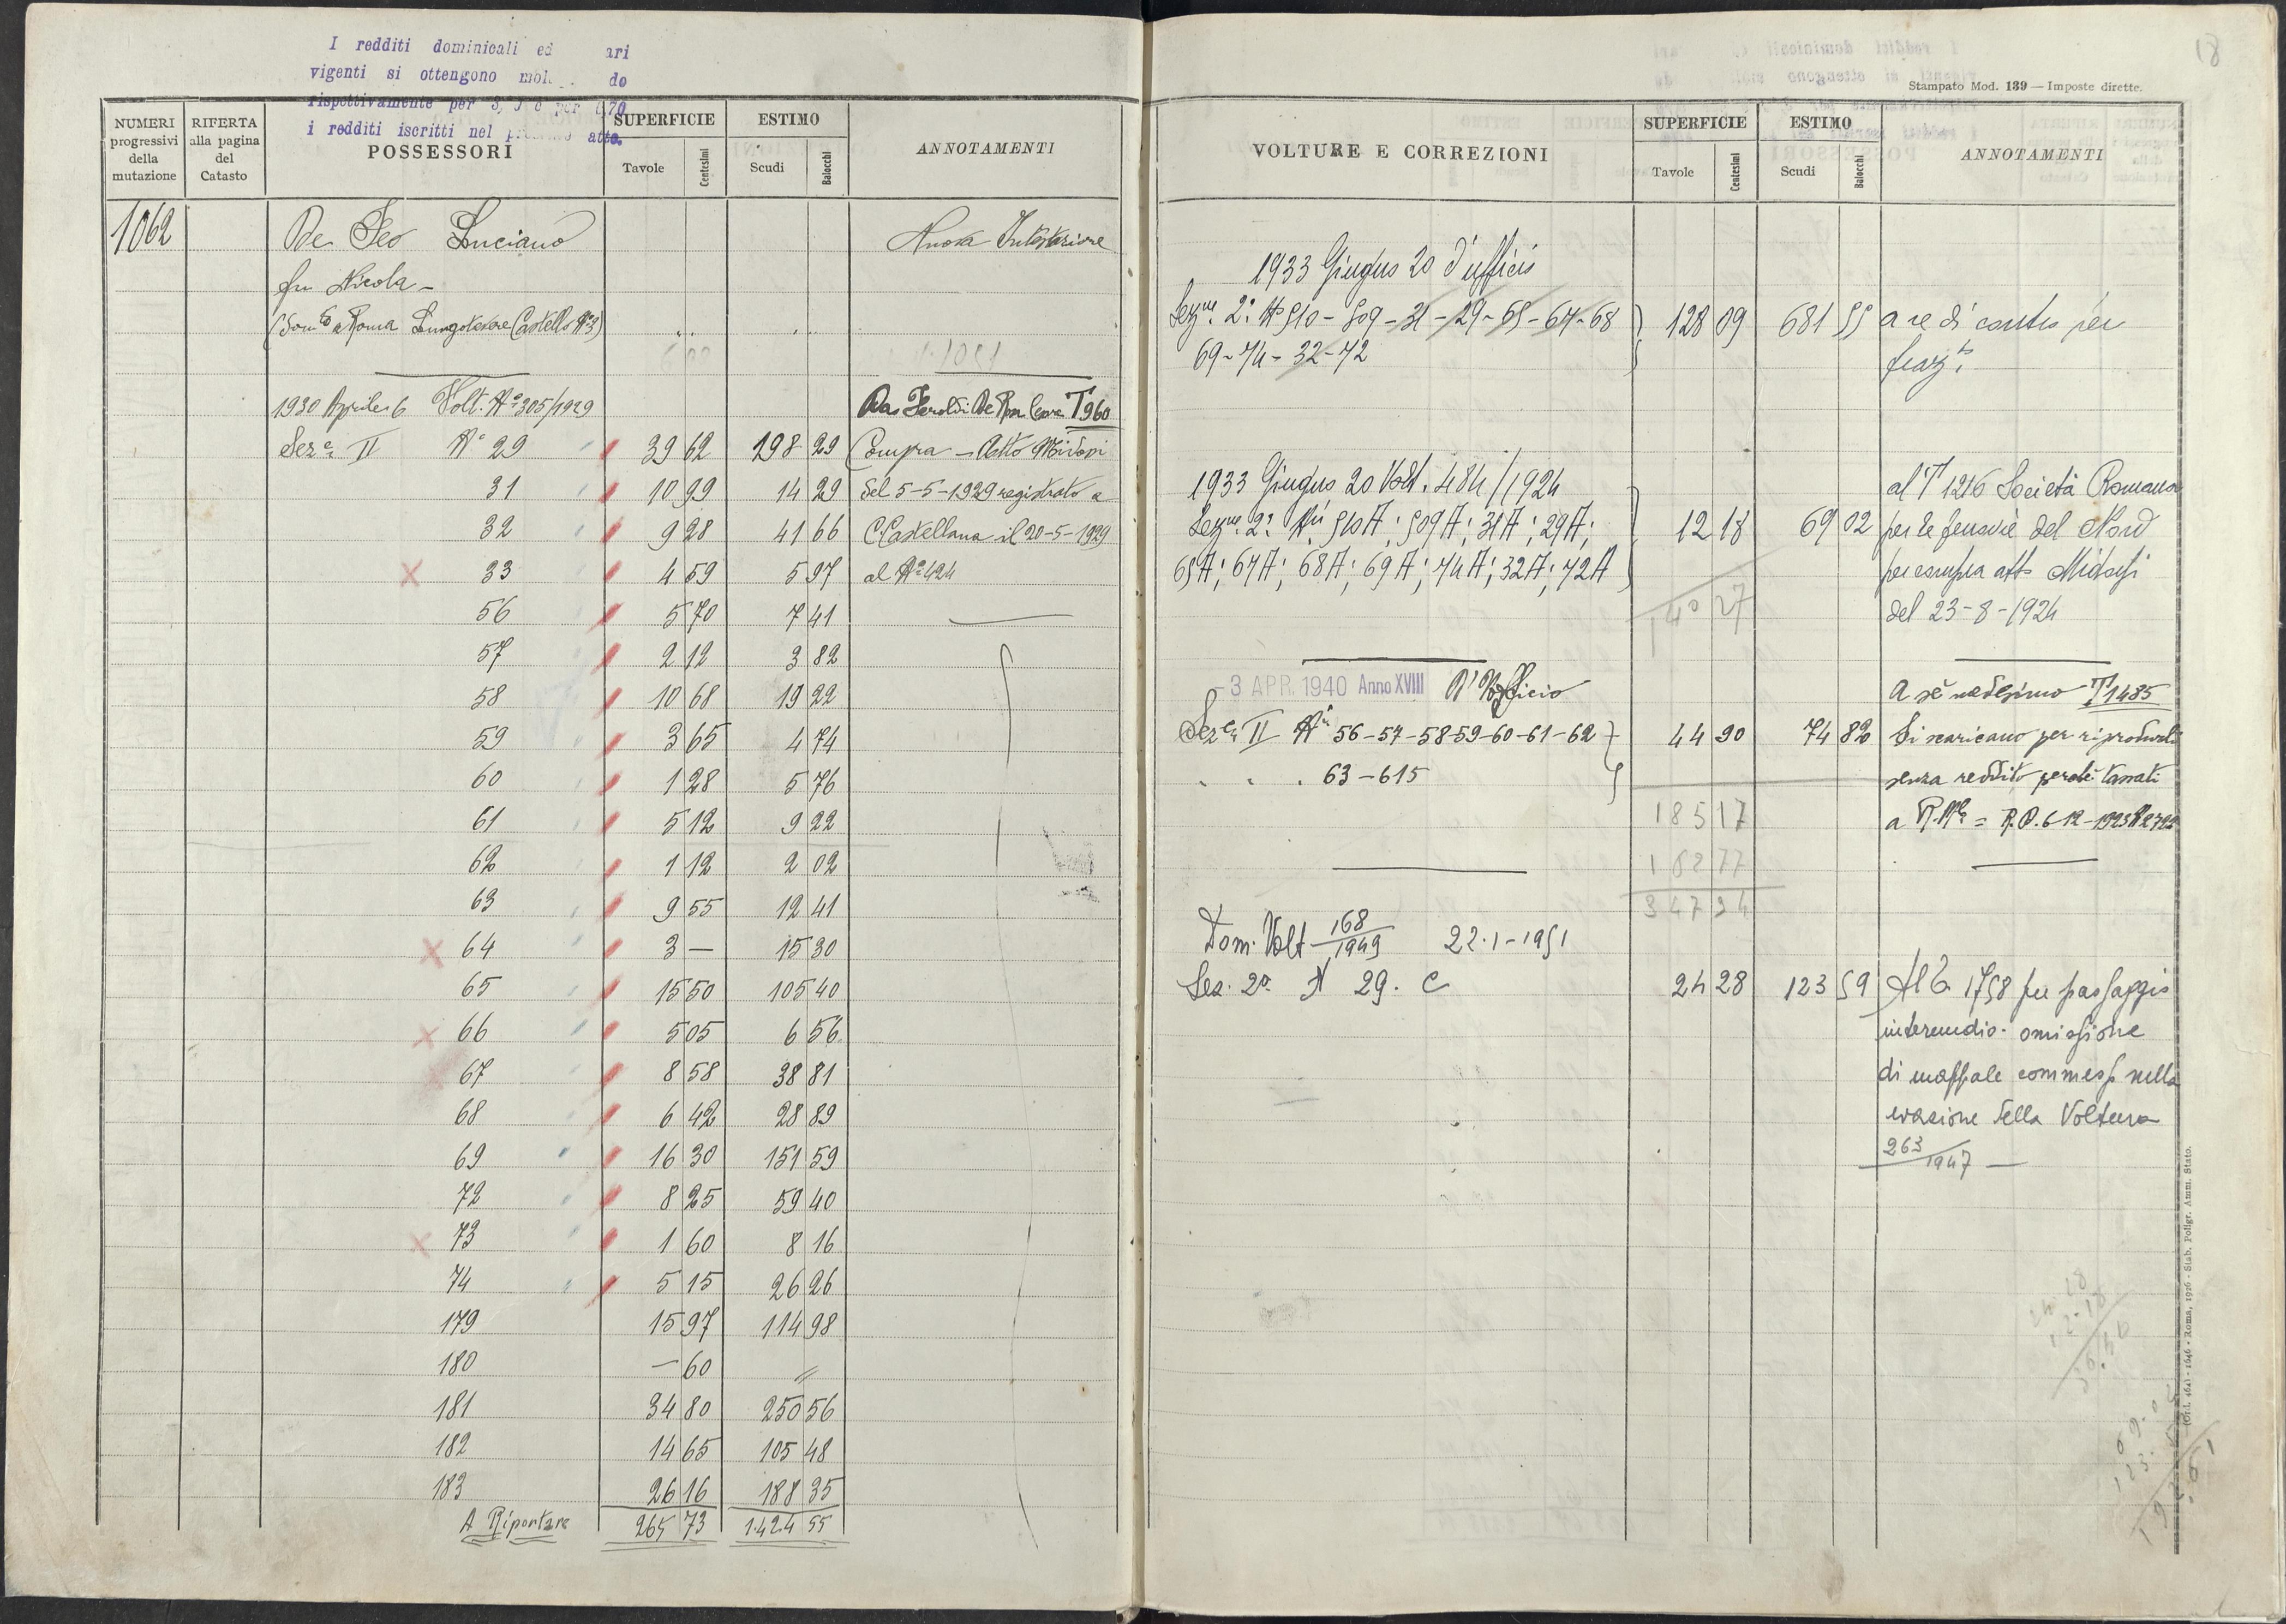 I redditi dominicali ed ari
vigenti si ottengono mol do
rispettivamente per 3, e per 0,70
i redditi iscritti nel atto.
NUMERI progressivi della mutazione
RIFERTA alla pagina del Catasto
POSSESSORI
SUPERFICIE
Tavole Centesimi
ESTIMO
Scudi Baiocchi
ANNOTAMENTI
1062 De Leo Luciano Nuova Intestazione
fu Nicola -
(Dom. to a Roma Lungotevere Castello N° 3)
1930 Aprile 6 Volt. N° 305/1929 T 960
Sez. e II N° 29 39 62 198 29 Compra - Atto Midossi
31 10 99 14 29 del 5-5-1929 registrato a
32 9 28 41 66 C. Castellana il 20-5-1929
33 4 59 5 97 al N° 424
56 5 70 7 41
57 2 12 3 82
58 10 68 19 22
59 3 65 4 74
60 1 28 5 76
61 5 12 9 22
62 1 12 2 02
63 9 55 12 41
64 3 — 15 30
65 15 50 105 40
66 5 05 6 56
67 8 58 38 81
68 6 42 28 89
69 16 30 151 59
72 8 25 59 40
73 1 60 8 16
74 5 15 26 26
179 15 97 114 98
180 — 60 "
181 34 80 250 56
182 14 65 105 48
183 26 16 188 35
A Riportare 265 73 1424 55
18
Stampato Mod. 139 — Imposte dirette.
VOLTURE E CORREZIONI
SUPERFICIE
Tavole Centesimi
ESTIMO
Scudi Baiocchi
ANNOTAMENTI
1933 Giugno 20 d'ufficio
Sez. ne 2a Ni 510 - 509 - 31 - 29 - 65 - 67 - 68 128 09 681 55 a se di contro per
69 - 74 - 32 - 72 fraz. to
1933 Giugno 20 Volt. 484/1924 al T 1216 Società Romana
Sez. ne 2a Ni 510A; 509A; 31A; 29A; 12 18 69 02 per le ferrovie del Nord
65A; 67A; 68A; 69A; 74A; 32A; 72A per compra atto Midossi
140 27 del 23-8-1924
-3 APR. 1940 Anno XVIII D'Ufficio A sè medesimo T 1485
Sez. e II Ni 56-57-58-59-60-61-62 44 90 74 82 Si scaricano per riprodurli
" " " 63-615 senza reddito perchè tassati
185 17 a R. M.e = R.D. 6-12-1923 N 2722
162 77
347 94
Dom. Volt 168/1949 22-1-1951
Sez. 2a N 29. C 24 28 123 59 Al T. 1758 per passaggio
intermedio - omissione
di mappale commessa nella
evasione della Voltura
263/1947 —
(Ord. 464) - 1646 - Roma, 1926 - Stab. Poligr. Amm. Stato.